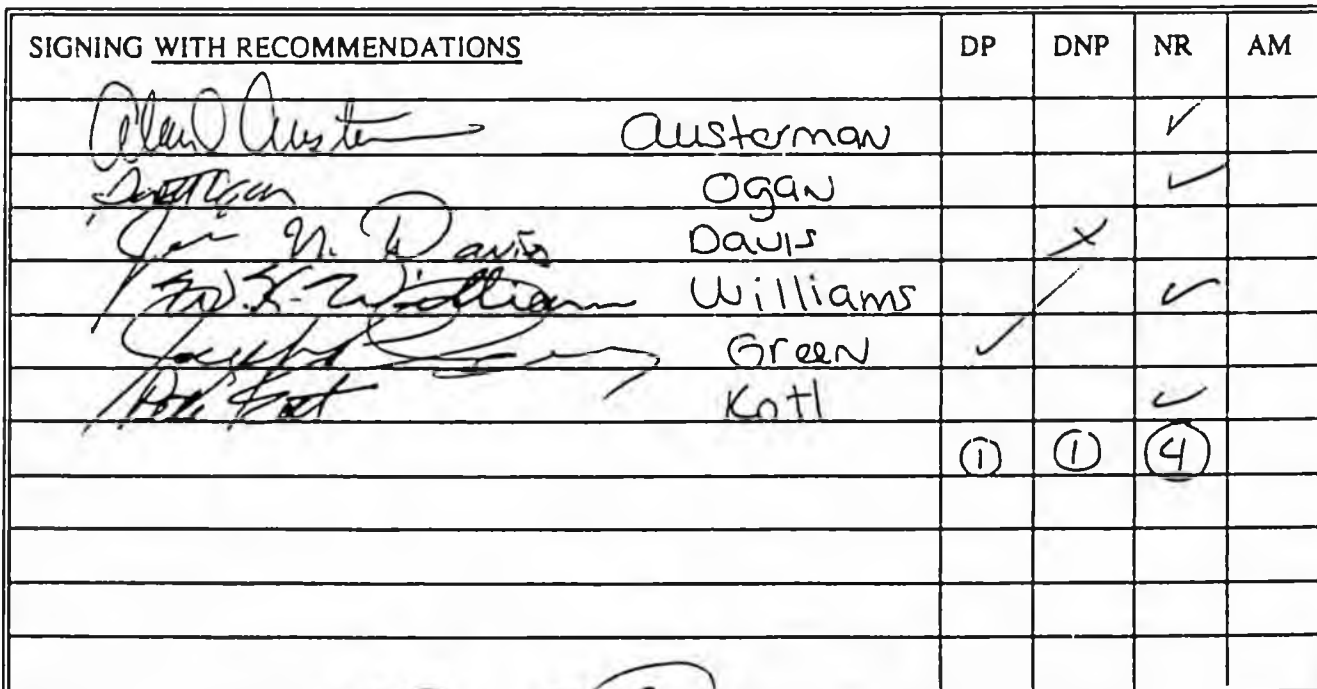 SIGNING WITH RECOMMENDATIONS DP DNP NR AM
Alan Austerman ✓
Ogan ✓
Davis X
W. K. Williams Williams ✓
Green ✓
Kott ✓
① ① ④